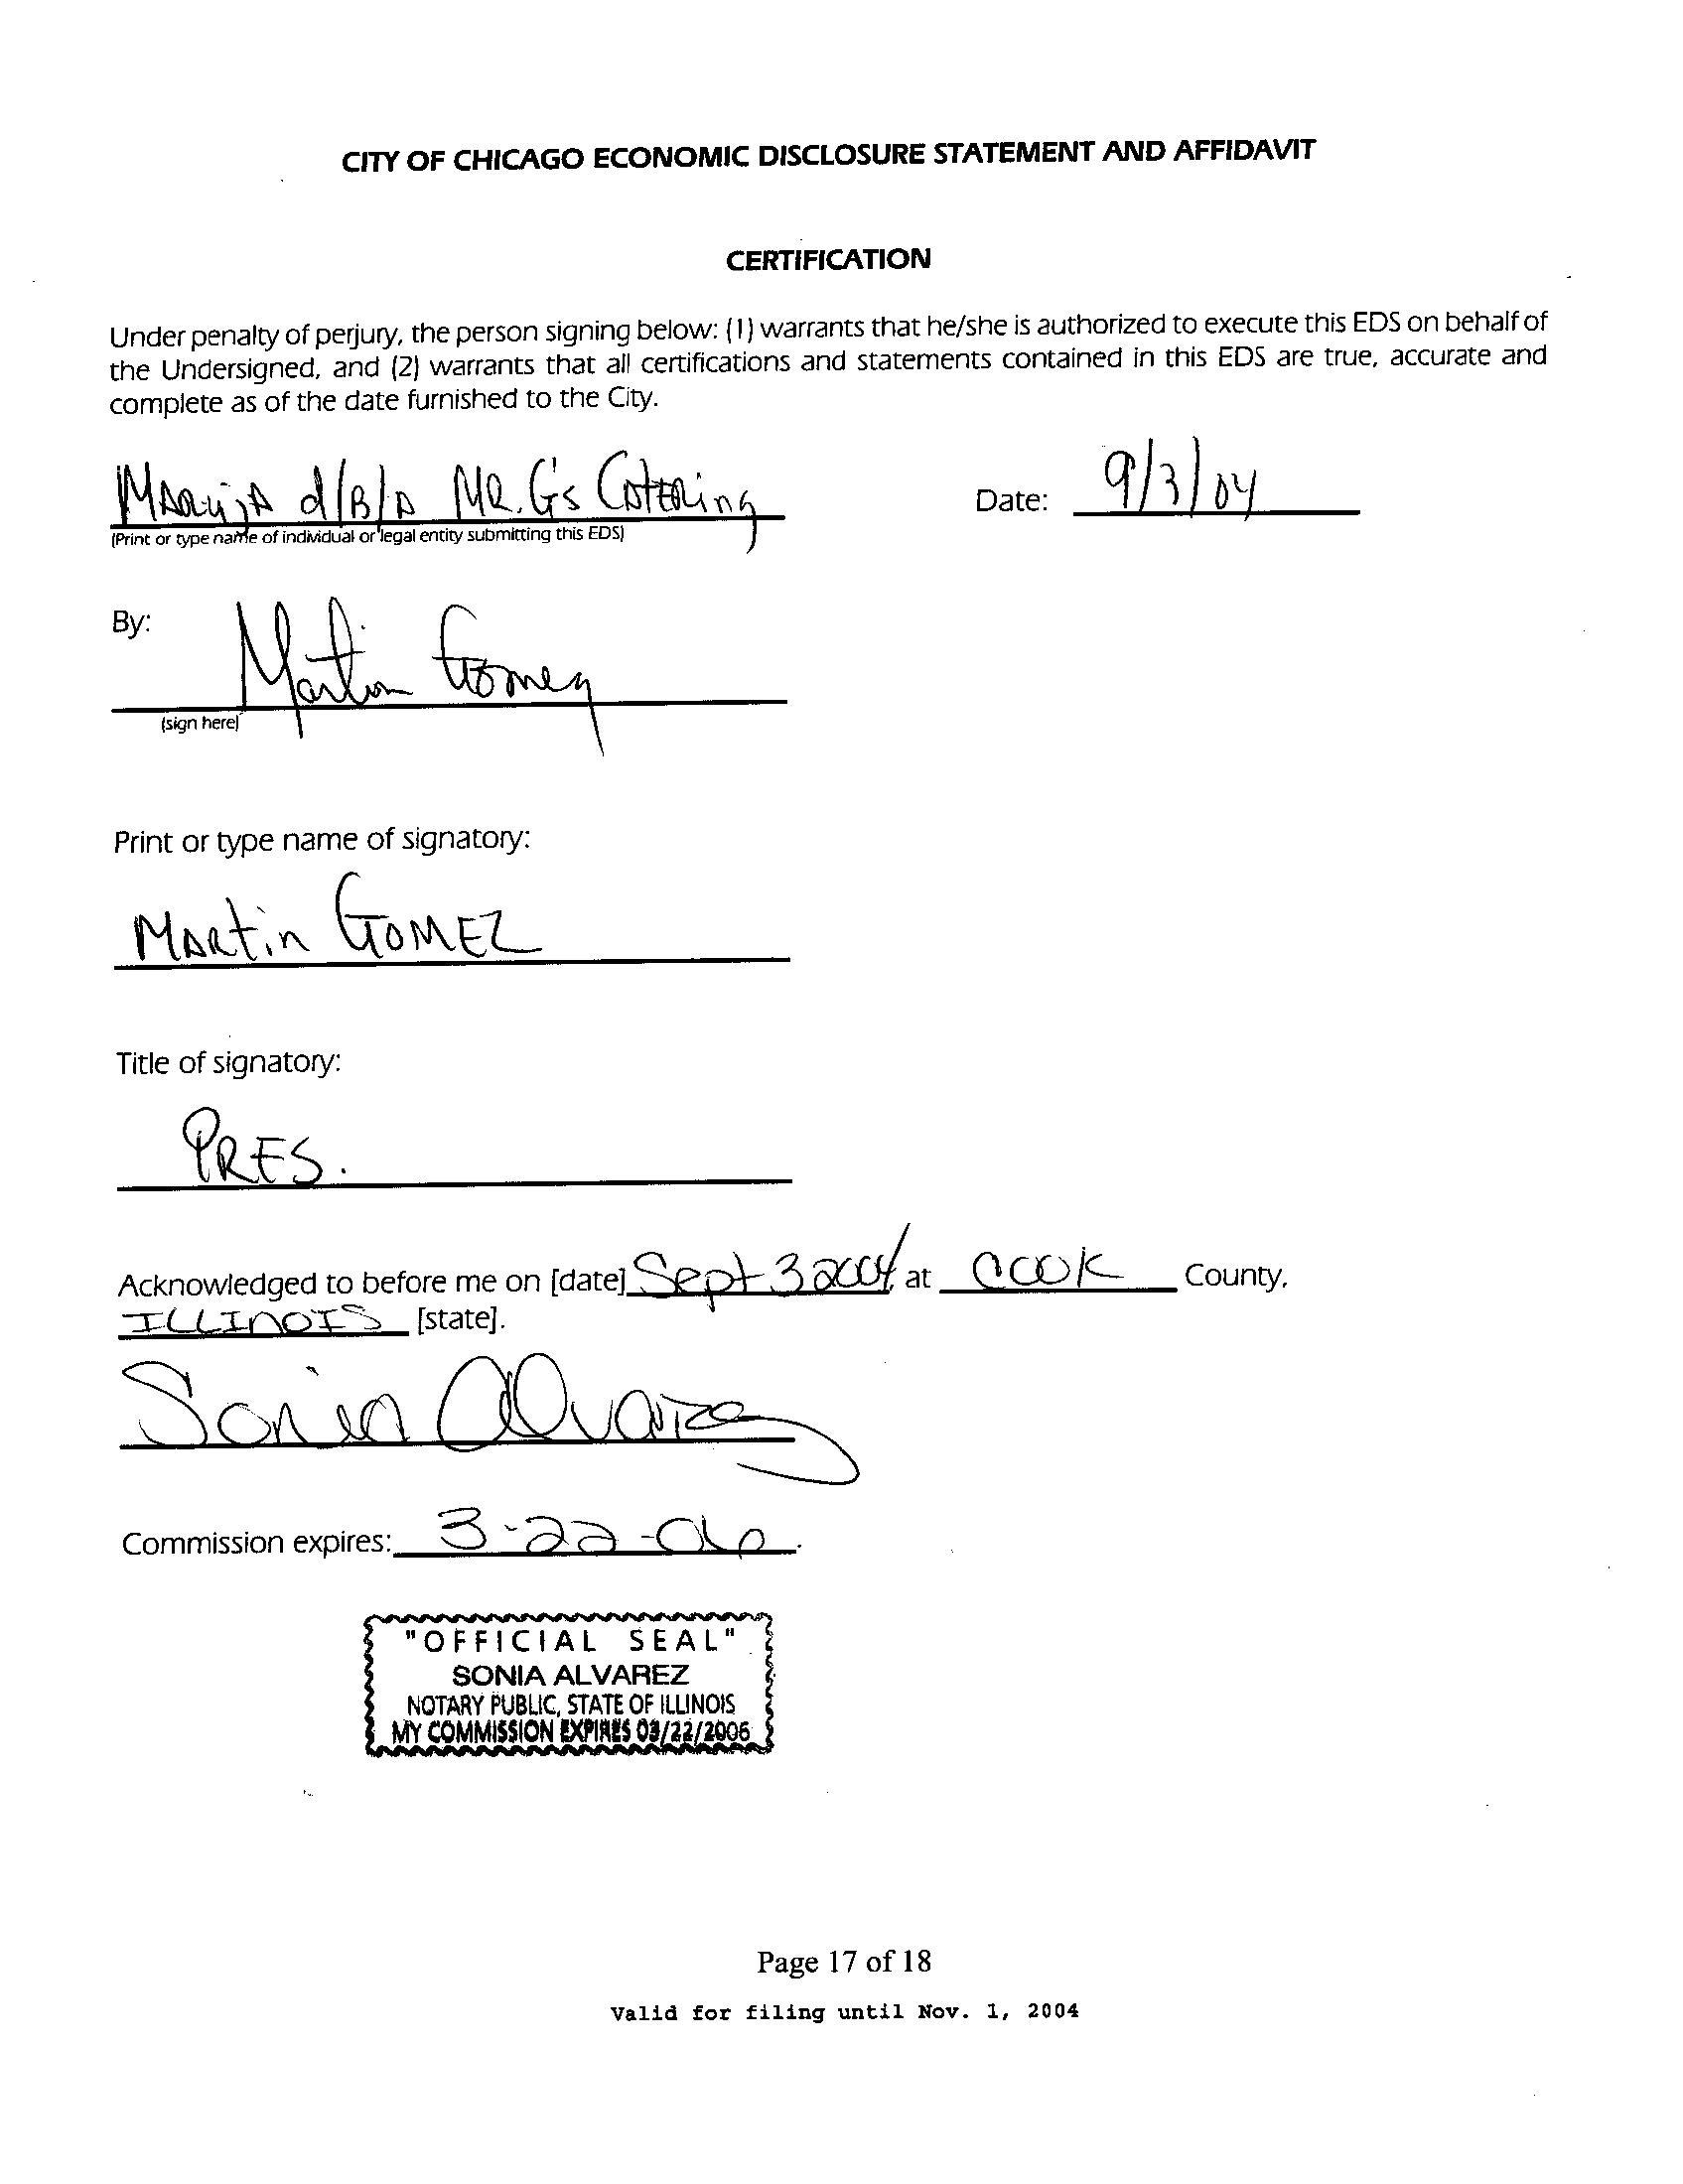 CITY OF CHICAGO ECONOMIC DISCLOSURE STATEMENT AND AFFIDAVIT
CERTIFICATION
Under penalty of perjury, the person signing below: (1) warrants that he/she is authorized to execute this EDS on behalf of
the Undersigned, and (2) warrants that all certifications and statements contained in this EDS are true, accurate and
complete as of the date furnished to the City.
d/B/A MR. G's Catering Date: 9/3/04
(Print or type name of individual or legal entity submitting this EDS)
By: Martin Gomez
(sign here)
Print or type name of signatory:
MARtin GOMEZ
Title of signatory:
PRES.
Acknowledged to before me on [date] Sept 3 2004, at COOK County,
ILLINOIS [state].
Sonia Alvarez
Commission expires: 3-22-06.
"OFFICIAL SEAL"
SONIA ALVAREZ
NOTARY PUBLIC, STATE OF ILLINOIS
MY COMMISSION EXPIRES 03/22/2006
Page 17 of 18
Valid for filing until Nov. 1, 2004